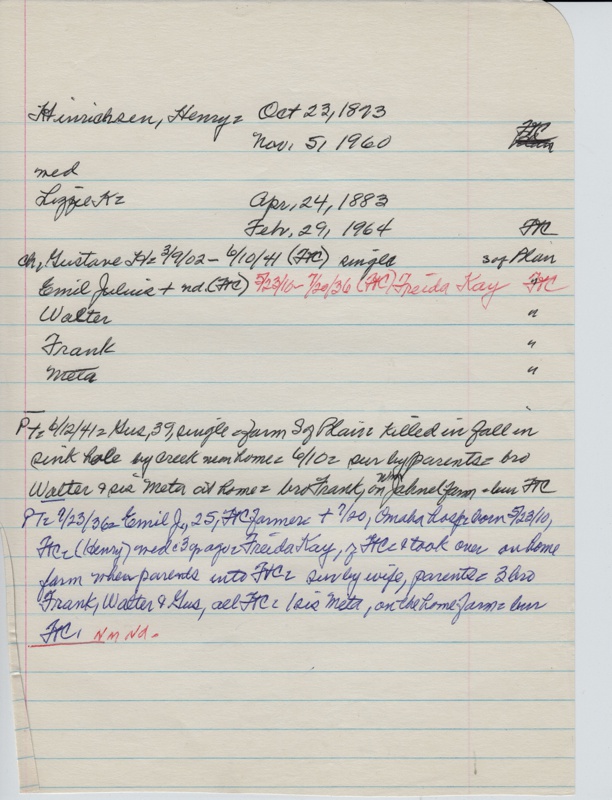 Hinrichsen, Henry = Oct 23, 1873
Nov. 5, 1960 FtC
med
Lizzie K = Apr, 24, 1883
Feb, 29, 1964 FtC
ch, Gustave H = 3/9/02 - 6/10/41 (FtC) single s of Plain
Emil Julius + nd. (FtC) 5/23/10 - 7/20/36 (FtC) Freida Kay FtC
Walter "
Frank "
Meta "
PT = 6/12/41 = Gus, 39, single = farm S of Plain = killed in fall in
sink hole by creek near home = 6/10 = sur by parents = bro
Walter & sis Meta at home = bro Frank, on farm = bur FtC
PT = 7/23/36 = Emil J., 25, FtC farmer = + 7/20, Omaha hosp = born 5/23/10,
FtC = (Henry) med = 3 yr ago = Freida Kay, of FtC & took over on home
farm when parents into FtC = sur by wife, parents = 3 bro
Frank, Walter & Gus, all FtC = 1 sis Meta, on the home farm = bur
FtC. N m Nd.